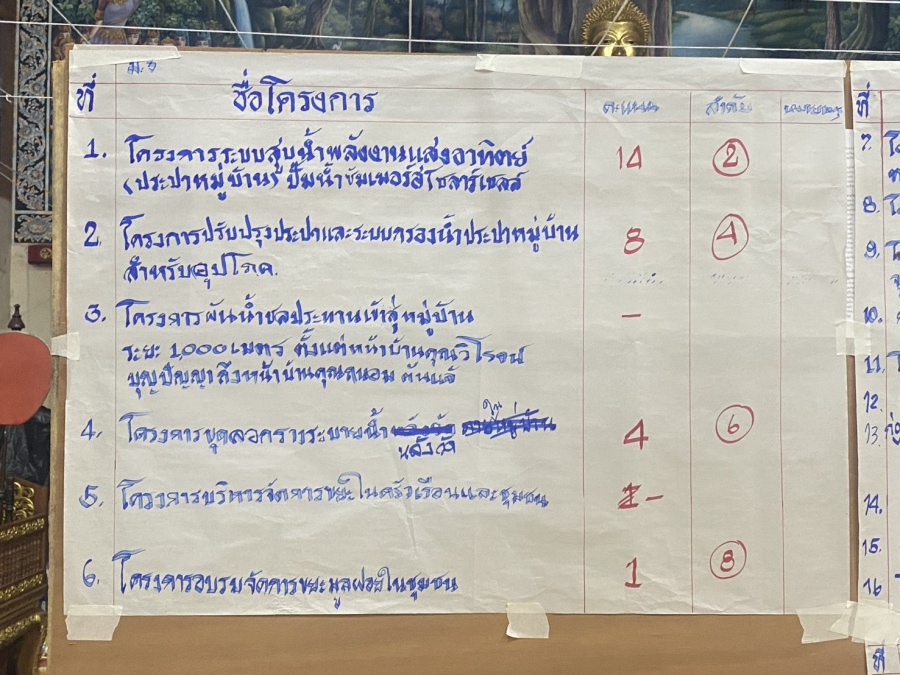 ม.5
ที่ ชื่อโครงการ คะแนน ลำดับ หมายเหตุ ที่
1. โครงการระบบสูบน้ำพลังงานแสงอาทิตย์ 14 2 7.
(ประปาหมู่บ้าน) ปั๊มน้ำซับเมอร์สโซลาร์เซลล์
2. โครงการปรับปรุงประปาและระบบกรองน้ำประปาหมู่บ้าน 8 4 8.
สำหรับอุปโภค. 9.
3. โครงการผันน้ำชลประทานเข้าสู่หมู่บ้าน - 10.
ระยะ 1,000 เมตร ตั้งแต่หน้าบ้านคุณวิโรจน์
บุญปัญญา ถึงหน้าบ้านคุณถนอม ต้นแจ้ 11.
12.
4. โครงการขุดลอกรางระบายน้ำ 4 6 13.
5. โครงการบริหารจัดการขยะในครัวเรือนและชุมชน - 14.
15.
6. โครงการอบรมจัดการขยะมูลฝอยในชุมชน 1 8 16
ที่